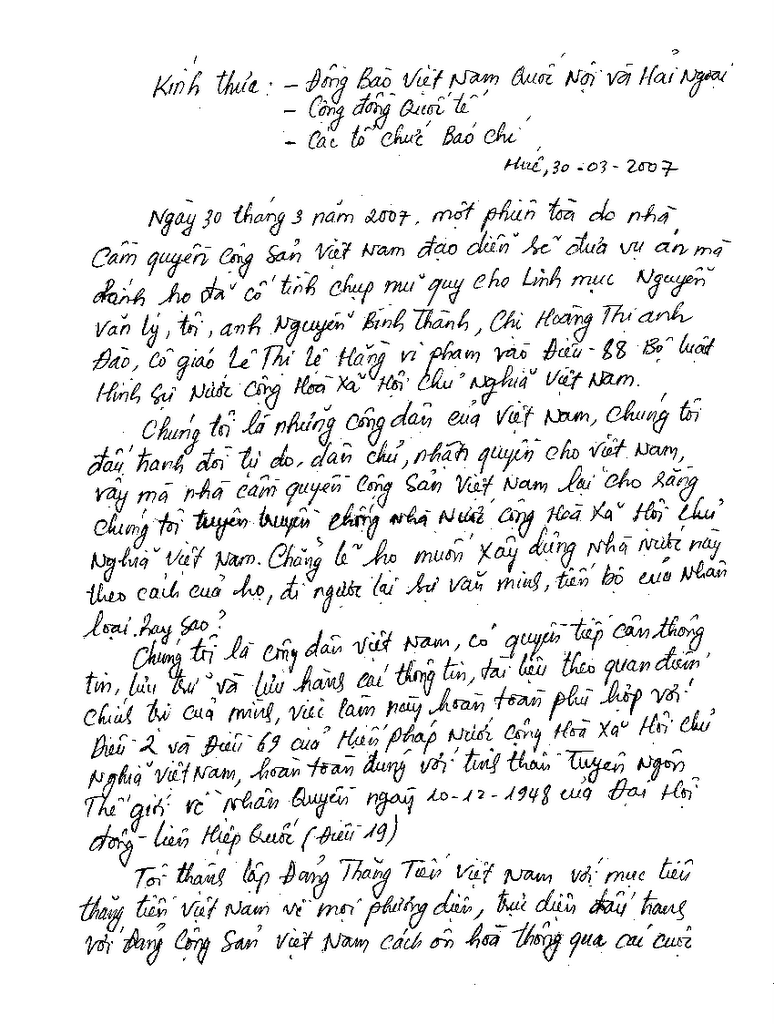 Kính thưa: - Đồng Bào Việt Nam Quốc Nội và Hải Ngoại
- Cộng đồng Quốc tế
- Các tổ chức Báo chí
Huế, 30-03-2007
Ngày 30 tháng 3 năm 2007, một phiên toà do nhà
Cầm quyền Cộng Sản Việt Nam đạo diễn sẽ đưa vụ án mà
chính họ đã cố tình chụp mũ quy cho Linh mục Nguyễn
Văn Lý, tôi, anh Nguyễn Bình Thành, Chị Hoàng Thị Anh
Đào, Cô giáo Lê Thị Lệ Hằng vi phạm vào Điều 88 Bộ luật
Hình sự Nước Cộng Hoà Xã Hội Chủ Nghĩa Việt Nam.
Chúng tôi là những công dân của Việt Nam, chúng tôi
đấu tranh đòi tự do, dân chủ, nhân quyền cho Việt Nam,
vậy mà nhà cầm quyền Cộng Sản Việt Nam lại cho rằng
chúng tôi tuyên truyền chống nhà Nước Cộng Hoà Xã Hội Chủ
Nghĩa Việt Nam. Chẳng lẽ họ muốn xây dựng Nhà Nước này
theo cách của họ, đi ngược lại sự văn minh, tiến bộ của Nhân
loại hay sao?
Chúng tôi là công dân Việt Nam, có quyền tiếp cận thông
tin, lưu trữ và lưu hành các thông tin, tài liệu theo quan điểm
chính trị của mình, việc làm này hoàn toàn phù hợp với
Điều 2 và Điều 69 của Hiến Pháp Nước Cộng Hoà Xã Hội Chủ
Nghĩa Việt Nam, hoàn toàn đúng với tinh thần Tuyên Ngôn
Thế giới về Nhân Quyền ngày 10-12-1948 của Đại Hội
đồng-Liên Hiệp Quốc (Điều 19)
Tôi thành lập Đảng Thăng Tiến Việt Nam với mục tiêu
thăng tiến Việt Nam về mọi phương diện, trực diện đấu tranh
với Đảng Cộng Sản Việt Nam cách ôn hoà thông qua các cuộc